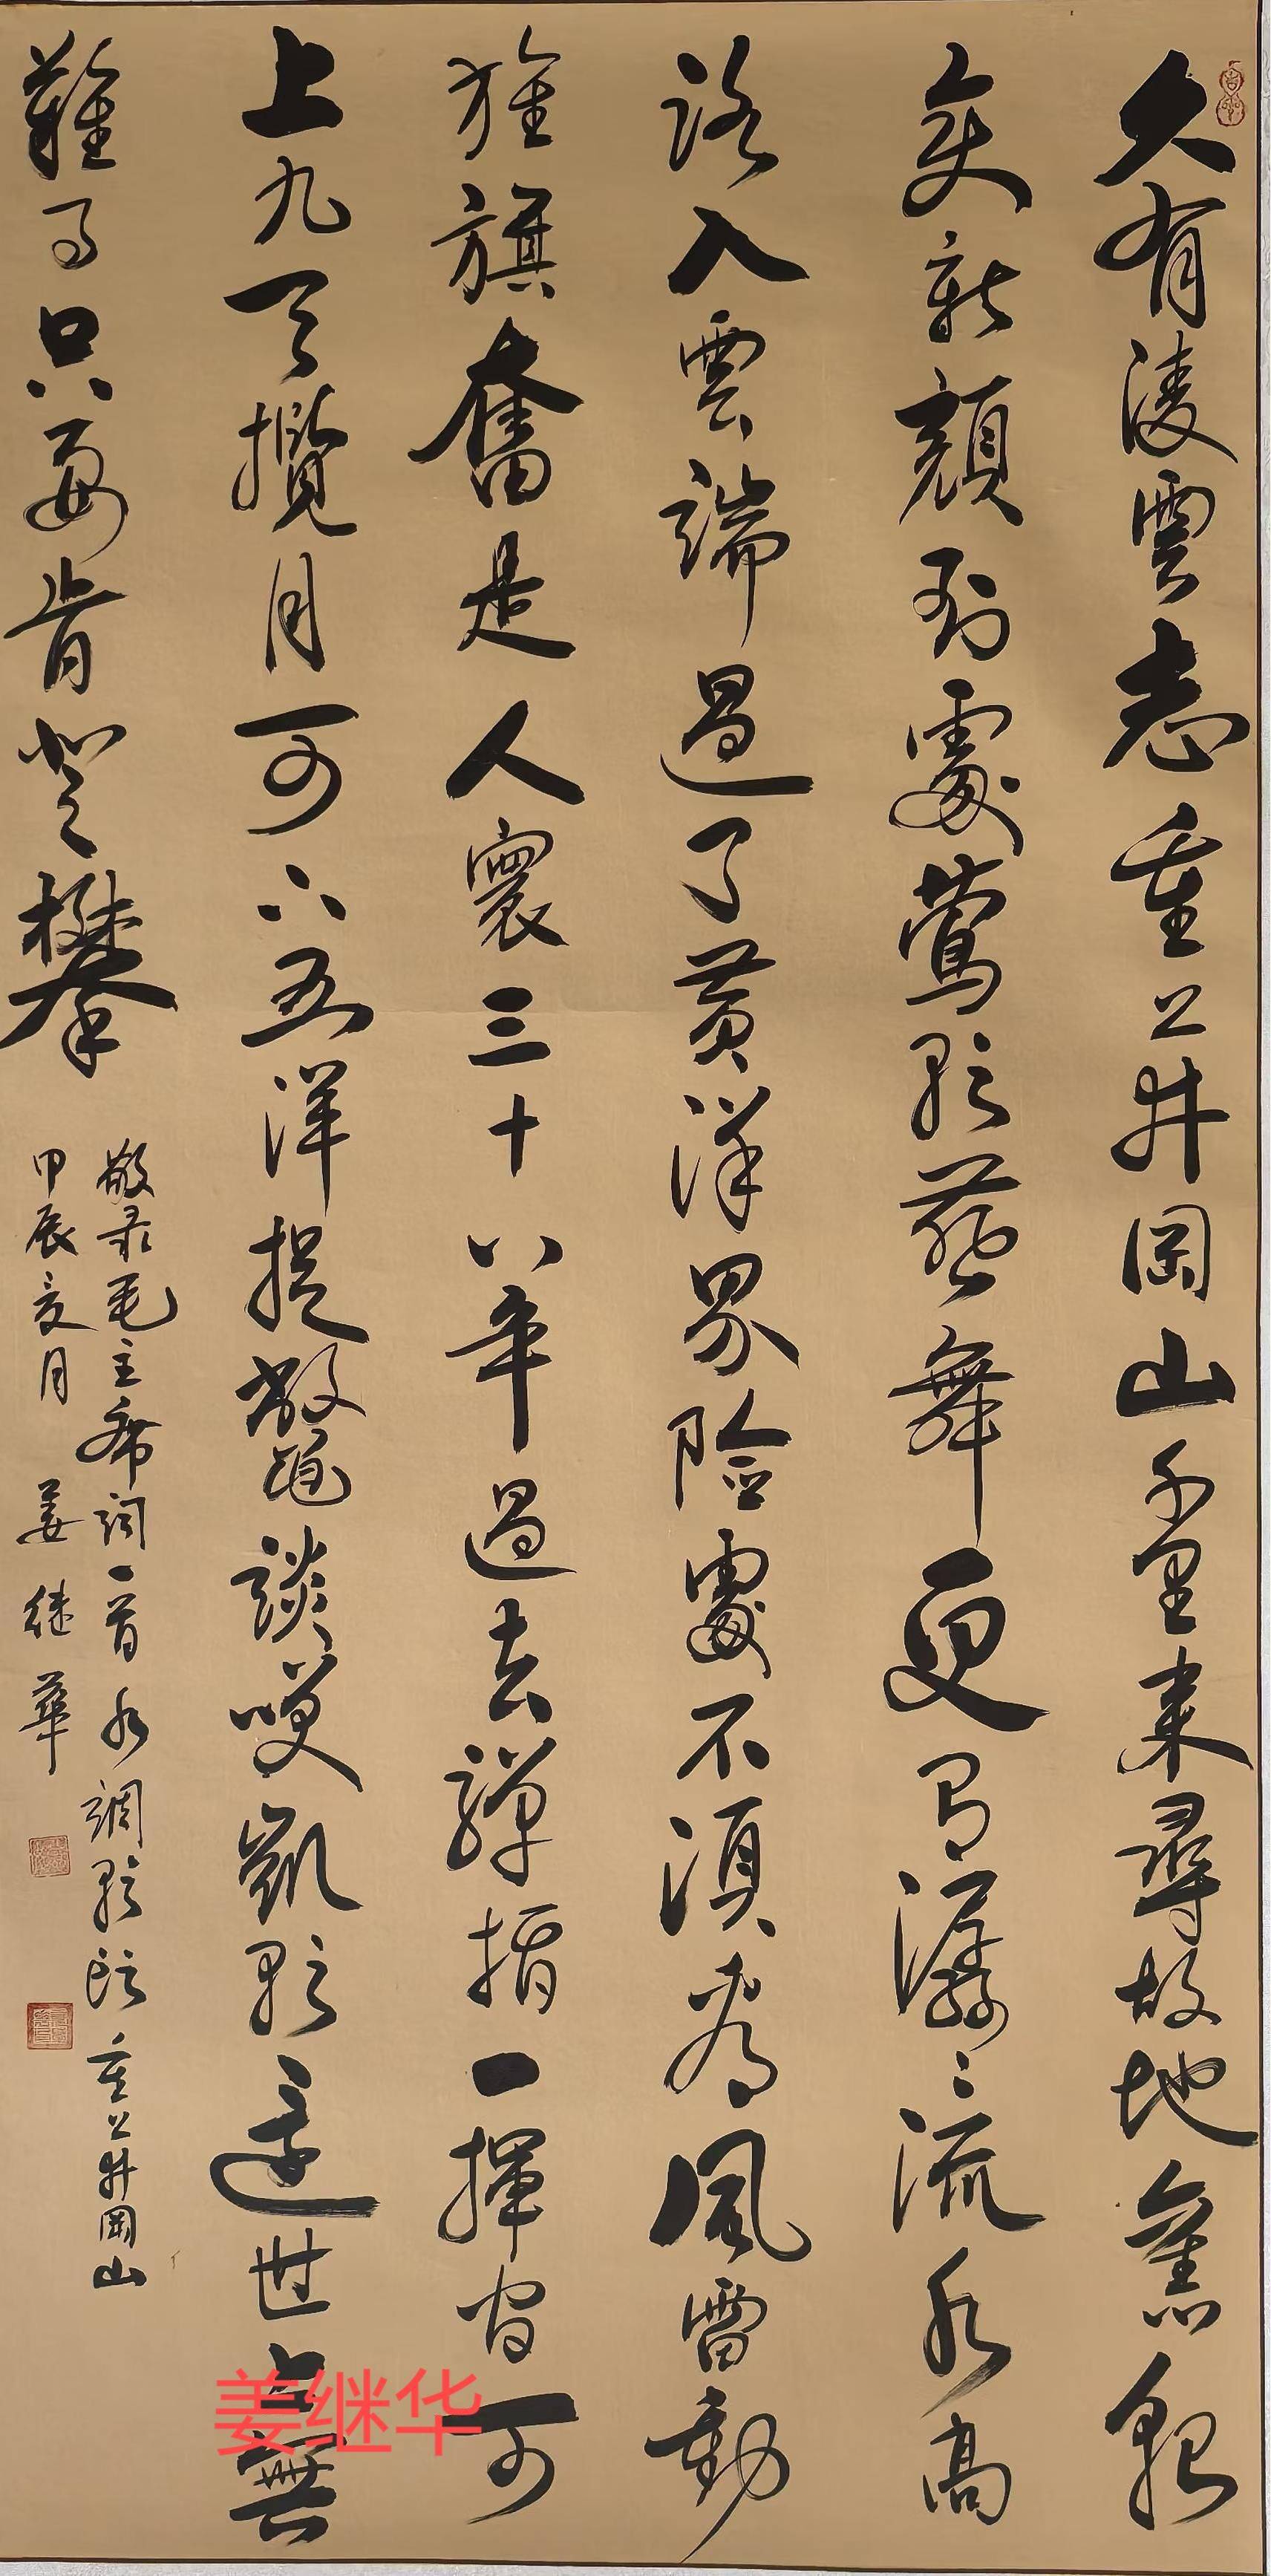 久有淩雲志重上井岡山千里來尋故地舊貌
變新顏到處鶯歌燕舞更有潺〻流水高
路入雲端過了黃洋界險處不須看風雷動
旌旗奮是人寰三十八年過去彈指一揮間可
上九天攬月可下五洋捉鱉談笑凱歌還世上無
難事只要肯登攀
敬录毛主席詞一首水調歌頭重上井岡山
甲辰夏月 姜继華
姜继华